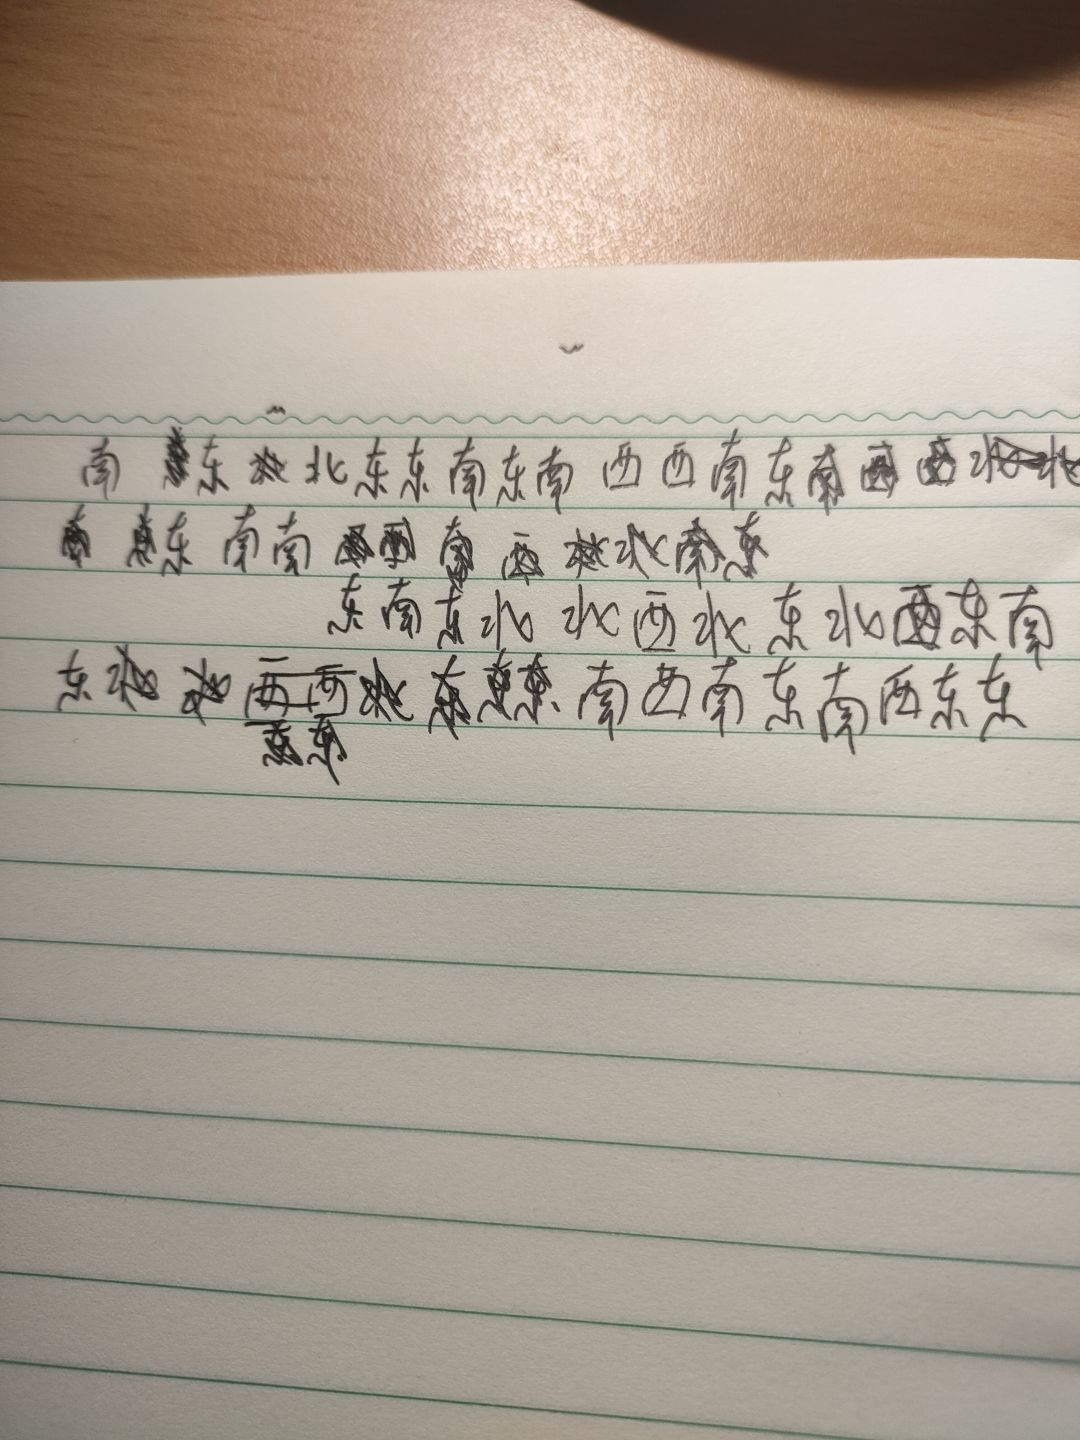 南 东 北 东 东 南 东 南 西 西 南 东 南 西 西 北 北
南 东 南 南 南 西 北 南 东
东 南 东 北 北 西 北 东 北 西 东 南
东 北 北 西 西 北 东 南 西 南 东 南 西 东 东